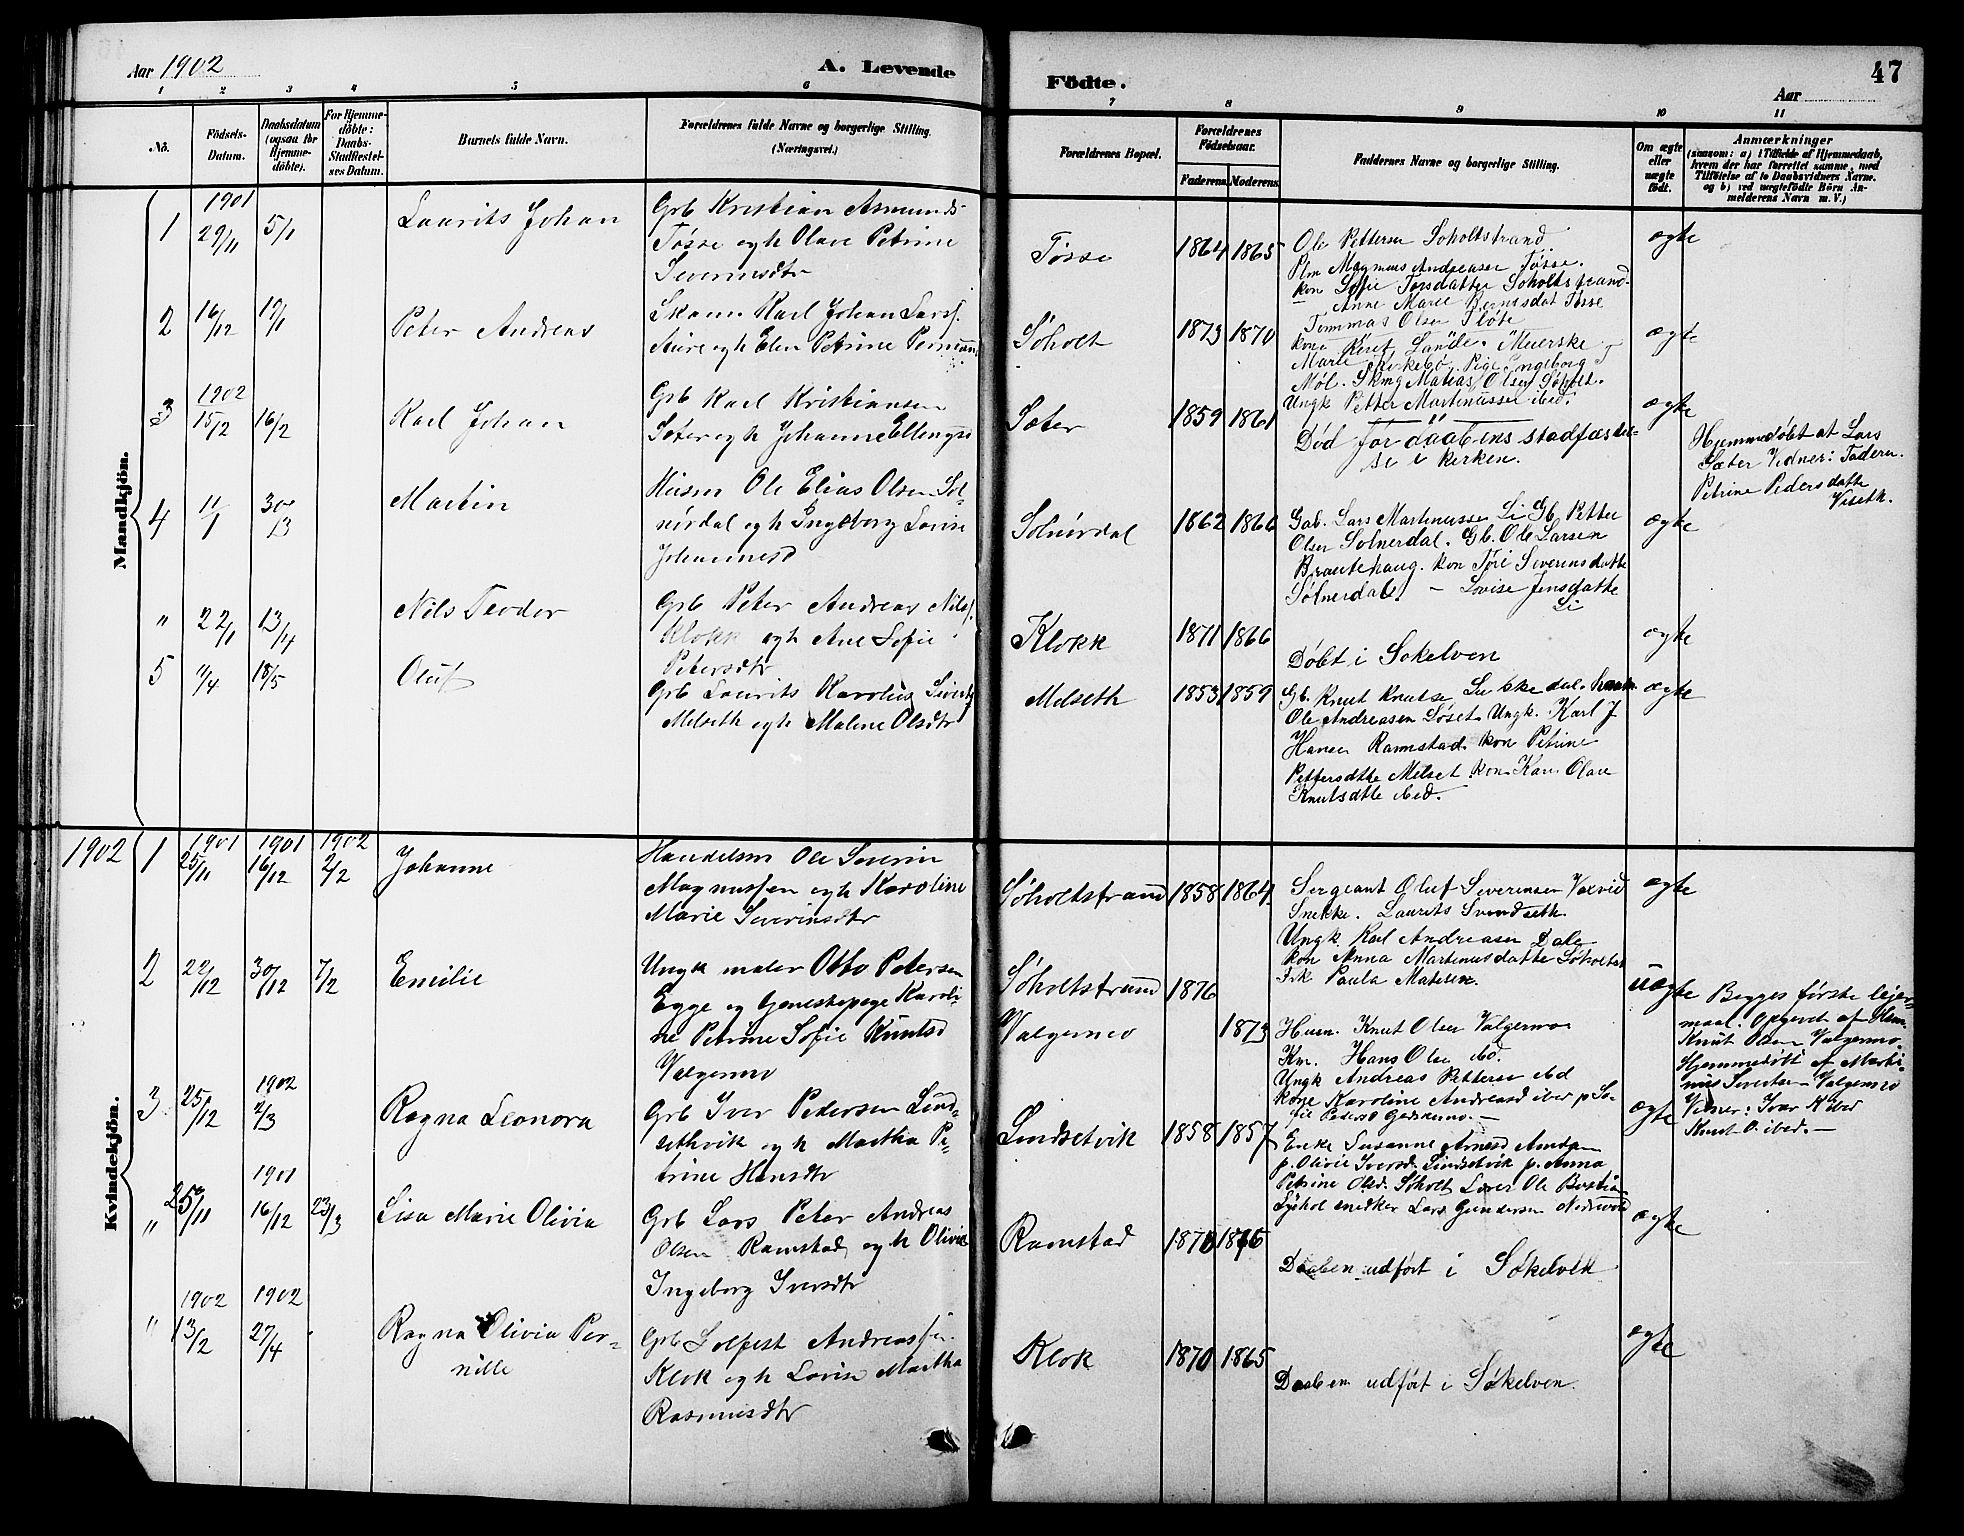 Aar 1902
A. Levende
Födte.
Aar
47
1 2 3 4 5 6 7 8 9 10 11
Nō.
Födsels-Datum.
Daabsdatum (ogsaa for Hjemme-döbte).
For Hjemme-döbte: Daabs-Stadfæstel-ses Datum.
Barnets fulde Navn.
Forældrenes fulde Navne og borgerlige Stilling. (Næringsvei.)
Forældrenes Bopæl.
Forældrenes Födselsaar.
Faderens. Moderens.
Faddernes Navne og borgerlige Stilling.
Om ægte eller uægte födt.
Anmærkninger
(saasom: a) i Tilfælde af Hjemmedaab, hvem der har forrettet samme, med Tilföielse af to Daabsvidners Navne. og b) ved uægtefödte Börn An-melderens Navn m. V.)
Mandkjön.
1 1901 29/11 5/1 Laurits Johan
Grb Kristian Asmunds
Tøsse og h Olave Petrine
Severinsdtr
Tøsse 1864 1865
Ole Pettersen Soholtstrand
Plm Magnus Andreasen Tøsse.
kon Sofie Torsdatter Soholtstrand
Anne Marie Berntsdat Tøsse
ægte
2 16/12 19/1 Peter Andreas
Skom Karl Johan Larss.
Aure og h Elen Petrine
Søholt 1873 1870
Tommas Olsen Fløte
kone Lande. Meierske
Marie Kirkebø. Pige Ingeborg
Møl. Matias Olsen Søholt.
Ungk Petter Martinussen ibid.
ægte
3 1902 15/2 16/2 Karl Johan
Grb Karl Kristiansen
Sæter og h Johanne
Sæter 1859 1861
Død før daabens stadfæstel-
se i kirken.
ægte
Hjemmedøbt af Lars
Sæter Vidner: Faderen.
Petrine Pedersdatte
Viseth.
4 11/1 30/3 Martin
Husm Ole Elias Olsen Sol-
nørdal og h Ingeborg Lovise
Johannesd
Solnørdal 1862 1866
Gab. Lars Martinussen Li Gb. Petter
Olsen Solnerdal. Gb. Ole Larsen
Brautehaug. kon Tøri Severensdatte
Sølnerdal – Lovise Jensdatte
Li
ægte
" 22/1 13/4 Nils Teodor
Grb Peter Andreas Nilss.
Klokk og h Ane Sofie
Petersdtr
Klokk 1871 1866
Døbt i Søkelven
ægte
5 /4 18/5 Oluf
Grb Laurits Karolius Sivert
Melseth og h Maline Olsdtr
Melseth 1853 1859
Gb. Knut Knutsen
Ole Andreasen Søset. Ungk. Karl J
Hansen Ramstad. kon Petrine
Pettersdtte Melset kon Olave
Knutsdtte ibid.
ægte
Kvindekjön.
1902 1 1901 25/11 1901 16/12 1902 2/2 Johanne
Handelsm Ole Severin
Magnussen og h Karoline
Marie Severinsdtr
Søholtstrand 1858 1864
Sergeant Oluf Severensen
Snekke. Laurits Svendseth
Ungk. Karl Andreasen Dale
kon Anna Martinusdatte Søholtst
Frk Paula Matesen.
ægte
2 22/12 30/12 7/2 Emilie
Ungk maler Otto Petersen
Egge og Karoli-
ne Petrine Sofie Knutsd
Valgermo
Søholtstrand 1876
Valgermo 1873
Husm. Knut Olsen Valgermo
Km. Hans Olsen ibd.
Ungk Andreas Pettersen ibd
kone Karoline Andreasd ibed p So-
fie Pedersd
uægte
Begges første lejer-
maal. Opgevet af Husm.
Knut Olsen Valgermo.
Hjemmedøbt af Marti-
nus Sivertsen Valgermo
Vidner: Ivar K ibed
Knut O. ibed. –
3 25/12 1902 2/3 Ragna Leonora
Grb Iver Pedersen Lind-
sethvik og h Martha Pe-
trine Hansdtr
Lindsetvik 1858 1857
Enke Susanne Arnesd
p. Olivie Iversd. Lindsetvik p. Anna
Petrine Olsd. Søholt Ole
snedker Lars Gundersen
ægte
" 25/11 1901 16/12 23/3 Lisa Marie Olivia
Grb Lars Peter Andreas
Olsen Ramstad og h Olivie
Ingeborg Iversdtr
Ramstad
Daaben udført i Søkelvik
ægte
" 1902 13/2 1902 27/4 Ragna Olivia Per-
nille
Grb Solfest Andreassen
Klok og h Lovise Martha
Rasmusdtr
Klok 1870 1865
Daaben udført i Søkelven.
ægte